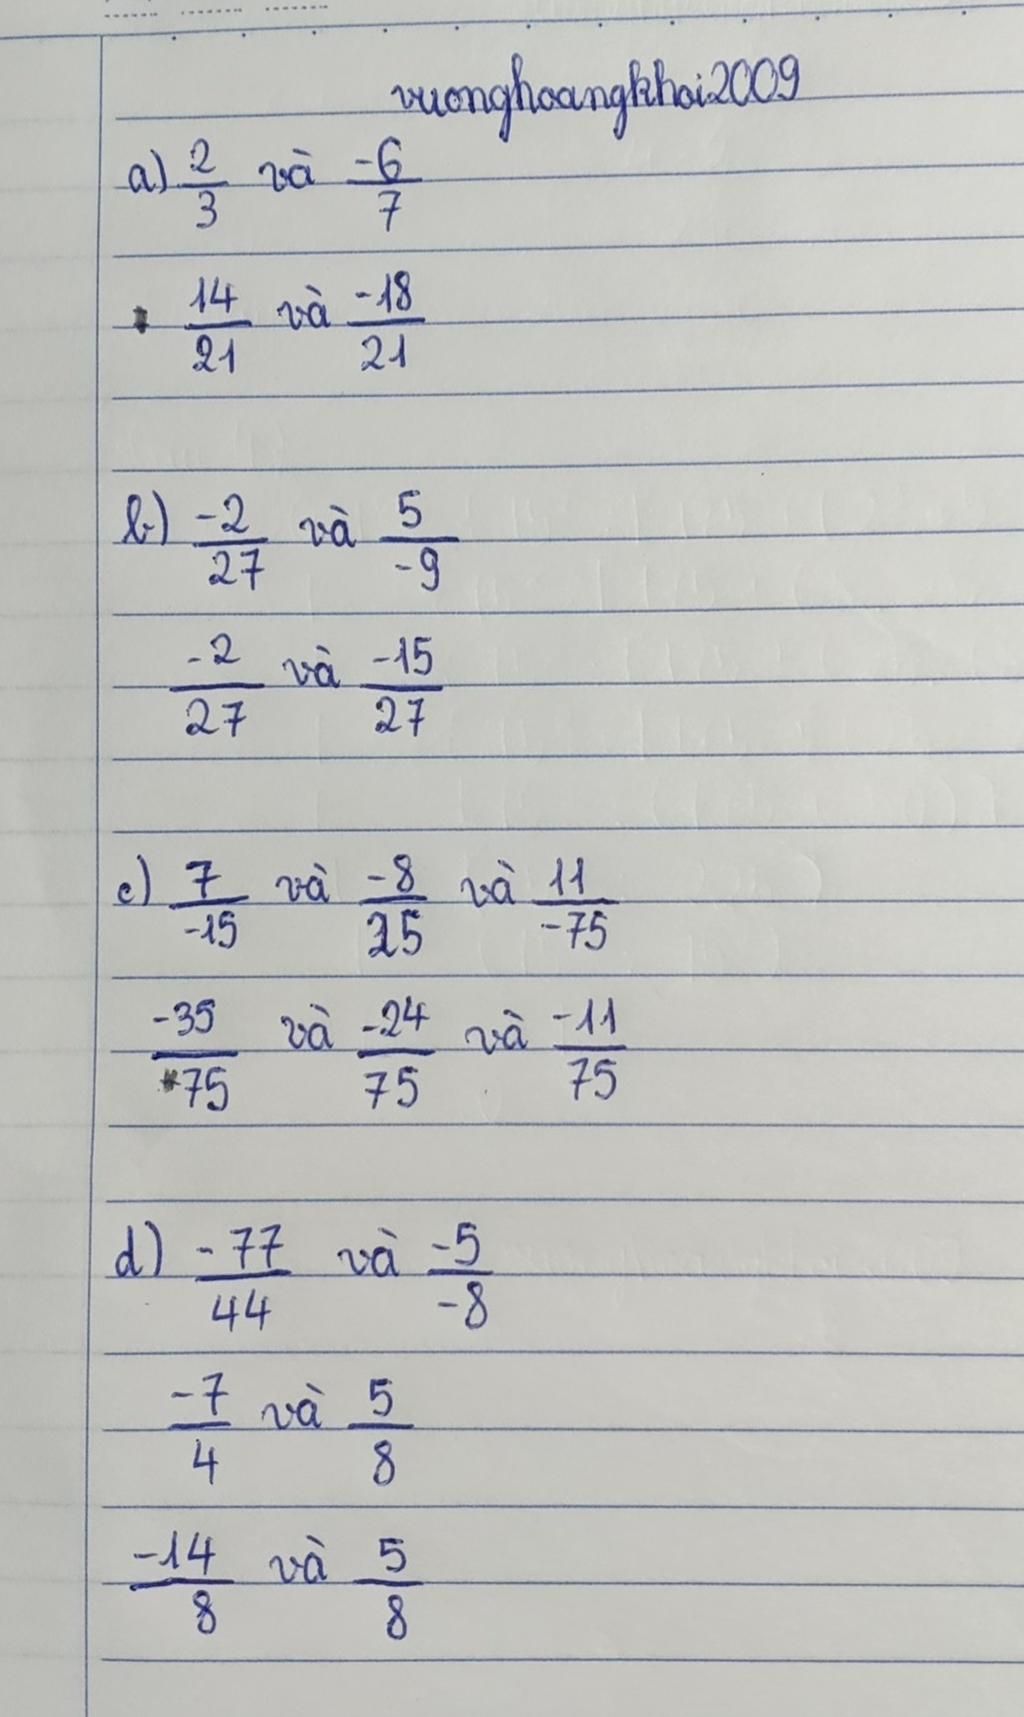 vuonghoangkhoi2009
a) 2/3 và -6/7
14/21 và -18/21
b) -2/27 và 5/-9
-2/27 và -15/27
c) 7/-15 và -8/25 và 11/-75
-35/75 và -24/75 và -11/75
d) -77/44 và -5/-8
-7/4 và 5/8
-14/8 và 5/8